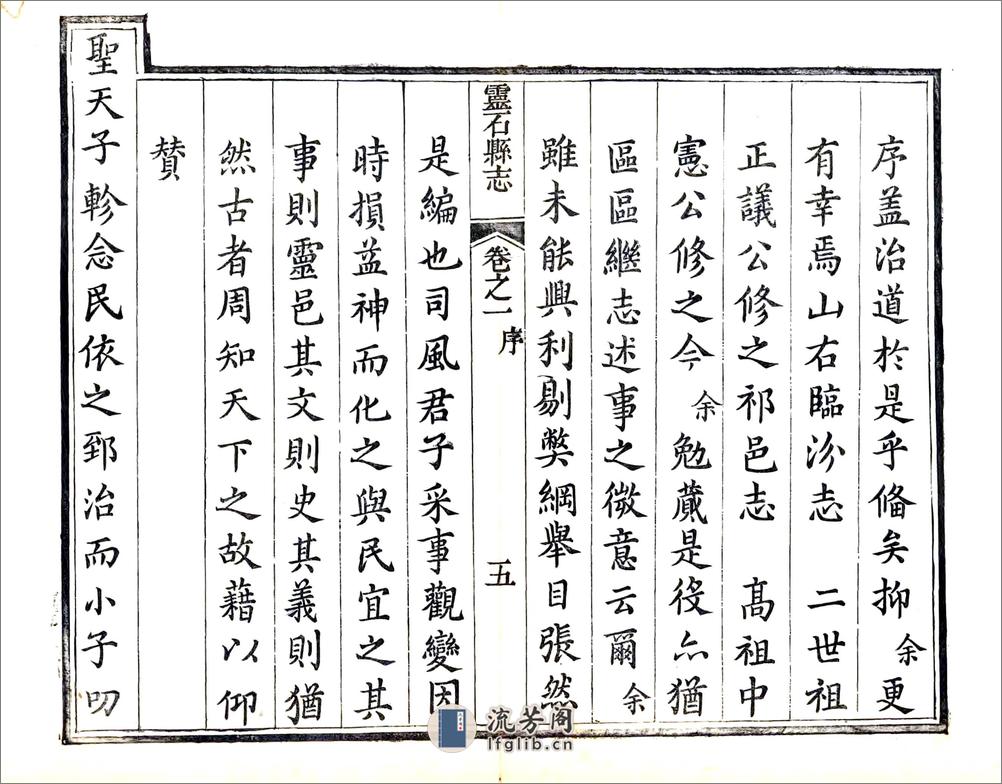 序盖治道於是乎俻矣抑余更
有幸焉山右臨汾志　二世祖
正議公修之祁邑志　髙祖中
憲公修之今余勉蕆是役亦猶
區區繼志述事之微意云爾余
雖未能興利剔弊綱舉目張然
靈石縣志
卷之一
序
五
是編也司風君子采事觀變因
時損益神而化之與民宜之其
事則靈邑其文則史其義則猶
然古者周知天下之故藉以仰
賛
聖天子軫念民依之郅治而小子叨
流芳阁
lfglib.cn